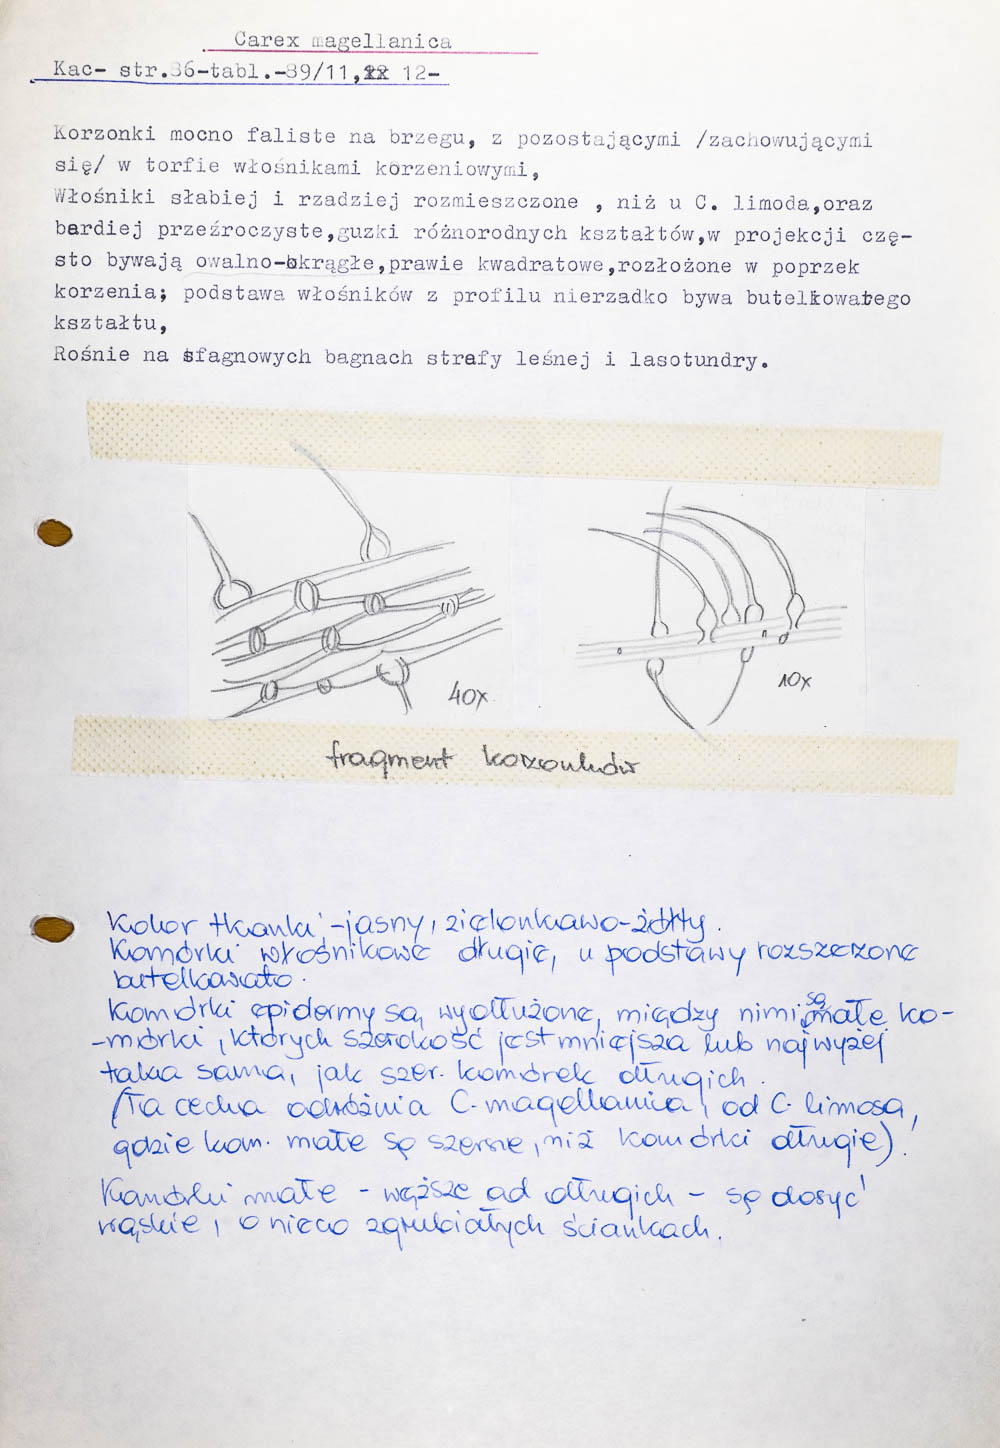 Carex magellanica
Kac- str.86-tabl.-89/11, 12-
Korzonki mocno faliste na brzegu, z pozostającymi /zachowującymi
się/ w torfie włośnikami korzeniowymi,
Włośniki słabiej i rzadziej rozmieszczone , niż u C. limoda,oraz
bardiej przeźroczyste,guzki różnorodnych kształtów,w projekcji czę-
sto bywają owalno-okrągłe,prawie kwadratowe,rozłożone w poprzek
korzenia; podstawa włośników z profilu nierzadko bywa butelkowatego
kształtu,
Rośnie na sfagnowych bagnach strafy leśnej i lasotundry.
40x
10x
fragment korzonków
Kolor tkanki -jasny, zielonkawo-żółty.
Komórki włośnikowe długie, u podstawy rozszerzone
butelkowato.
Komórki epidermy są wydłużone, między nimi są małe ko-
-mórki, których szerokość jest mniejsza lub najwyżej
taka sama, jak szer. komórek długich.
(Ta cecha odróżnia C. magellanica od C. limosa,
gdzie kom. małe są szersze, niż komórki długie).
Komórki małe - węższe od długich - są dosyć
wąskie, o nieco zgrubiałych ściankach.